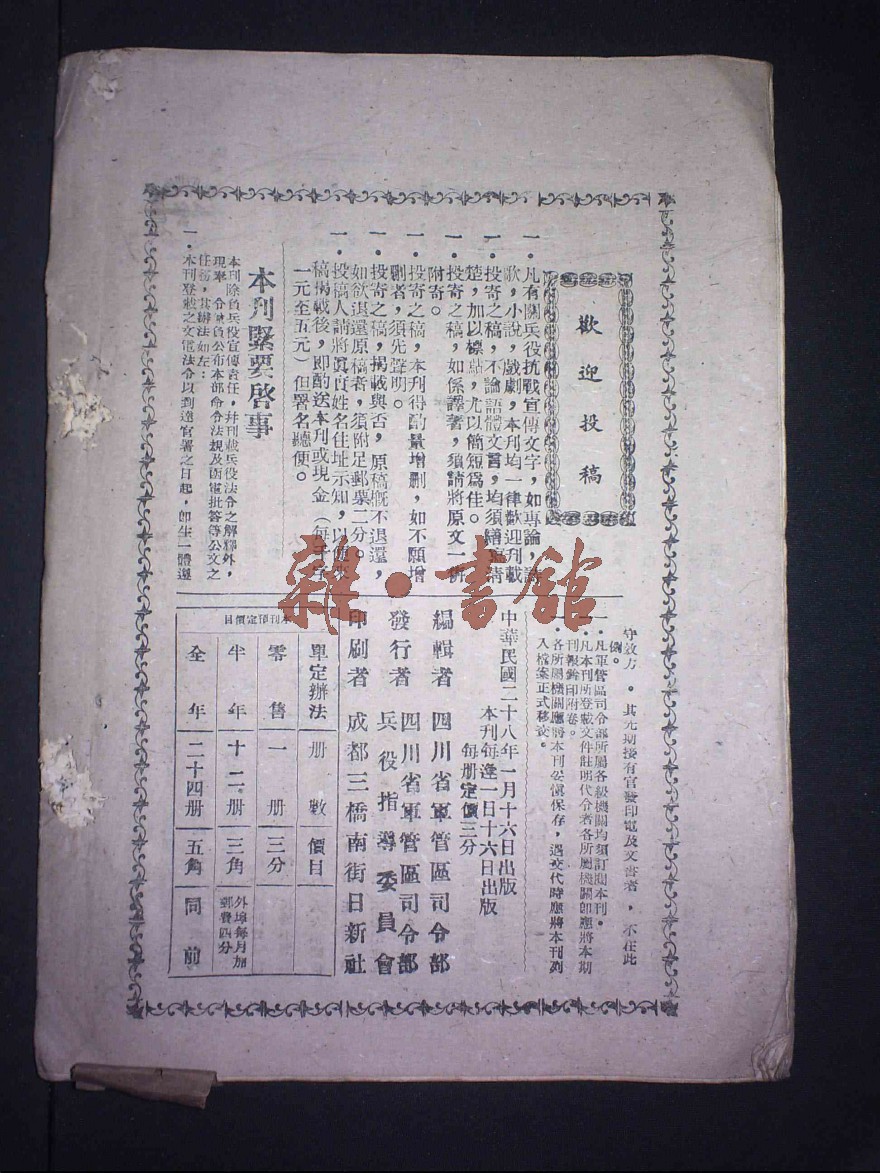 歡迎投稿
一．凡有關兵役抗戰宣傳文字，如專論，詩
歌，小說，戲劇，本刊均一律歡迎刊載
一．投寄之稿，不論語體文言，均須繕寫清
楚，加以標點，尤以簡短爲佳。
一．投寄之稿，如係譯著，須請將原文一併
附寄。
一．投寄之稿，本刊得酌量增删，如不願增
删者，須先聲明。
一．投寄之稿，揭載與否，原稿概不退還，
如欲退還原稿者，須附足郵票二分。
一．投稿人請將眞實姓名住址示知，以便來
稿揭載後，卽酌送本刊或現金（每千字
一元至五元）但署名聽便。
本刊緊要啓事
本刊除負兵役宣傳責任，并刊載兵役法令之解釋外，
現奉 令兼負公布本部命令法規及函電批答等公文之
任務，其辦法如左：
一．本刊登載之文電法令以到達官署之日起，卽生一體遵
守效力。其先期接有官發印電及文書者，不在此
例。
一．凡軍管區司令部所屬各級機關均須訂閱本刊。
一．凡本刊所登載文件註明代令者各所屬機關卽應將本期
刊報鈐印附卷。
一．各所屬機關應將本刊妥愼保存，遇交代時應將本刊列
入檔案正式移交。
中華民國二十八年一月十六日出版
本刊每逢一日十六日出版
每册定價三分
編輯者 四川省軍管區司令部
發行者 四川省軍管區司令部
兵役指導委員會
印刷者 成都三橋南街日新社
本刊預定價目
單定辦法 册數 價目
零售 一册 三分
半年 十二册 三角 外埠每月加郵費四分
全年 二十四册 五角 同前
雜·書館